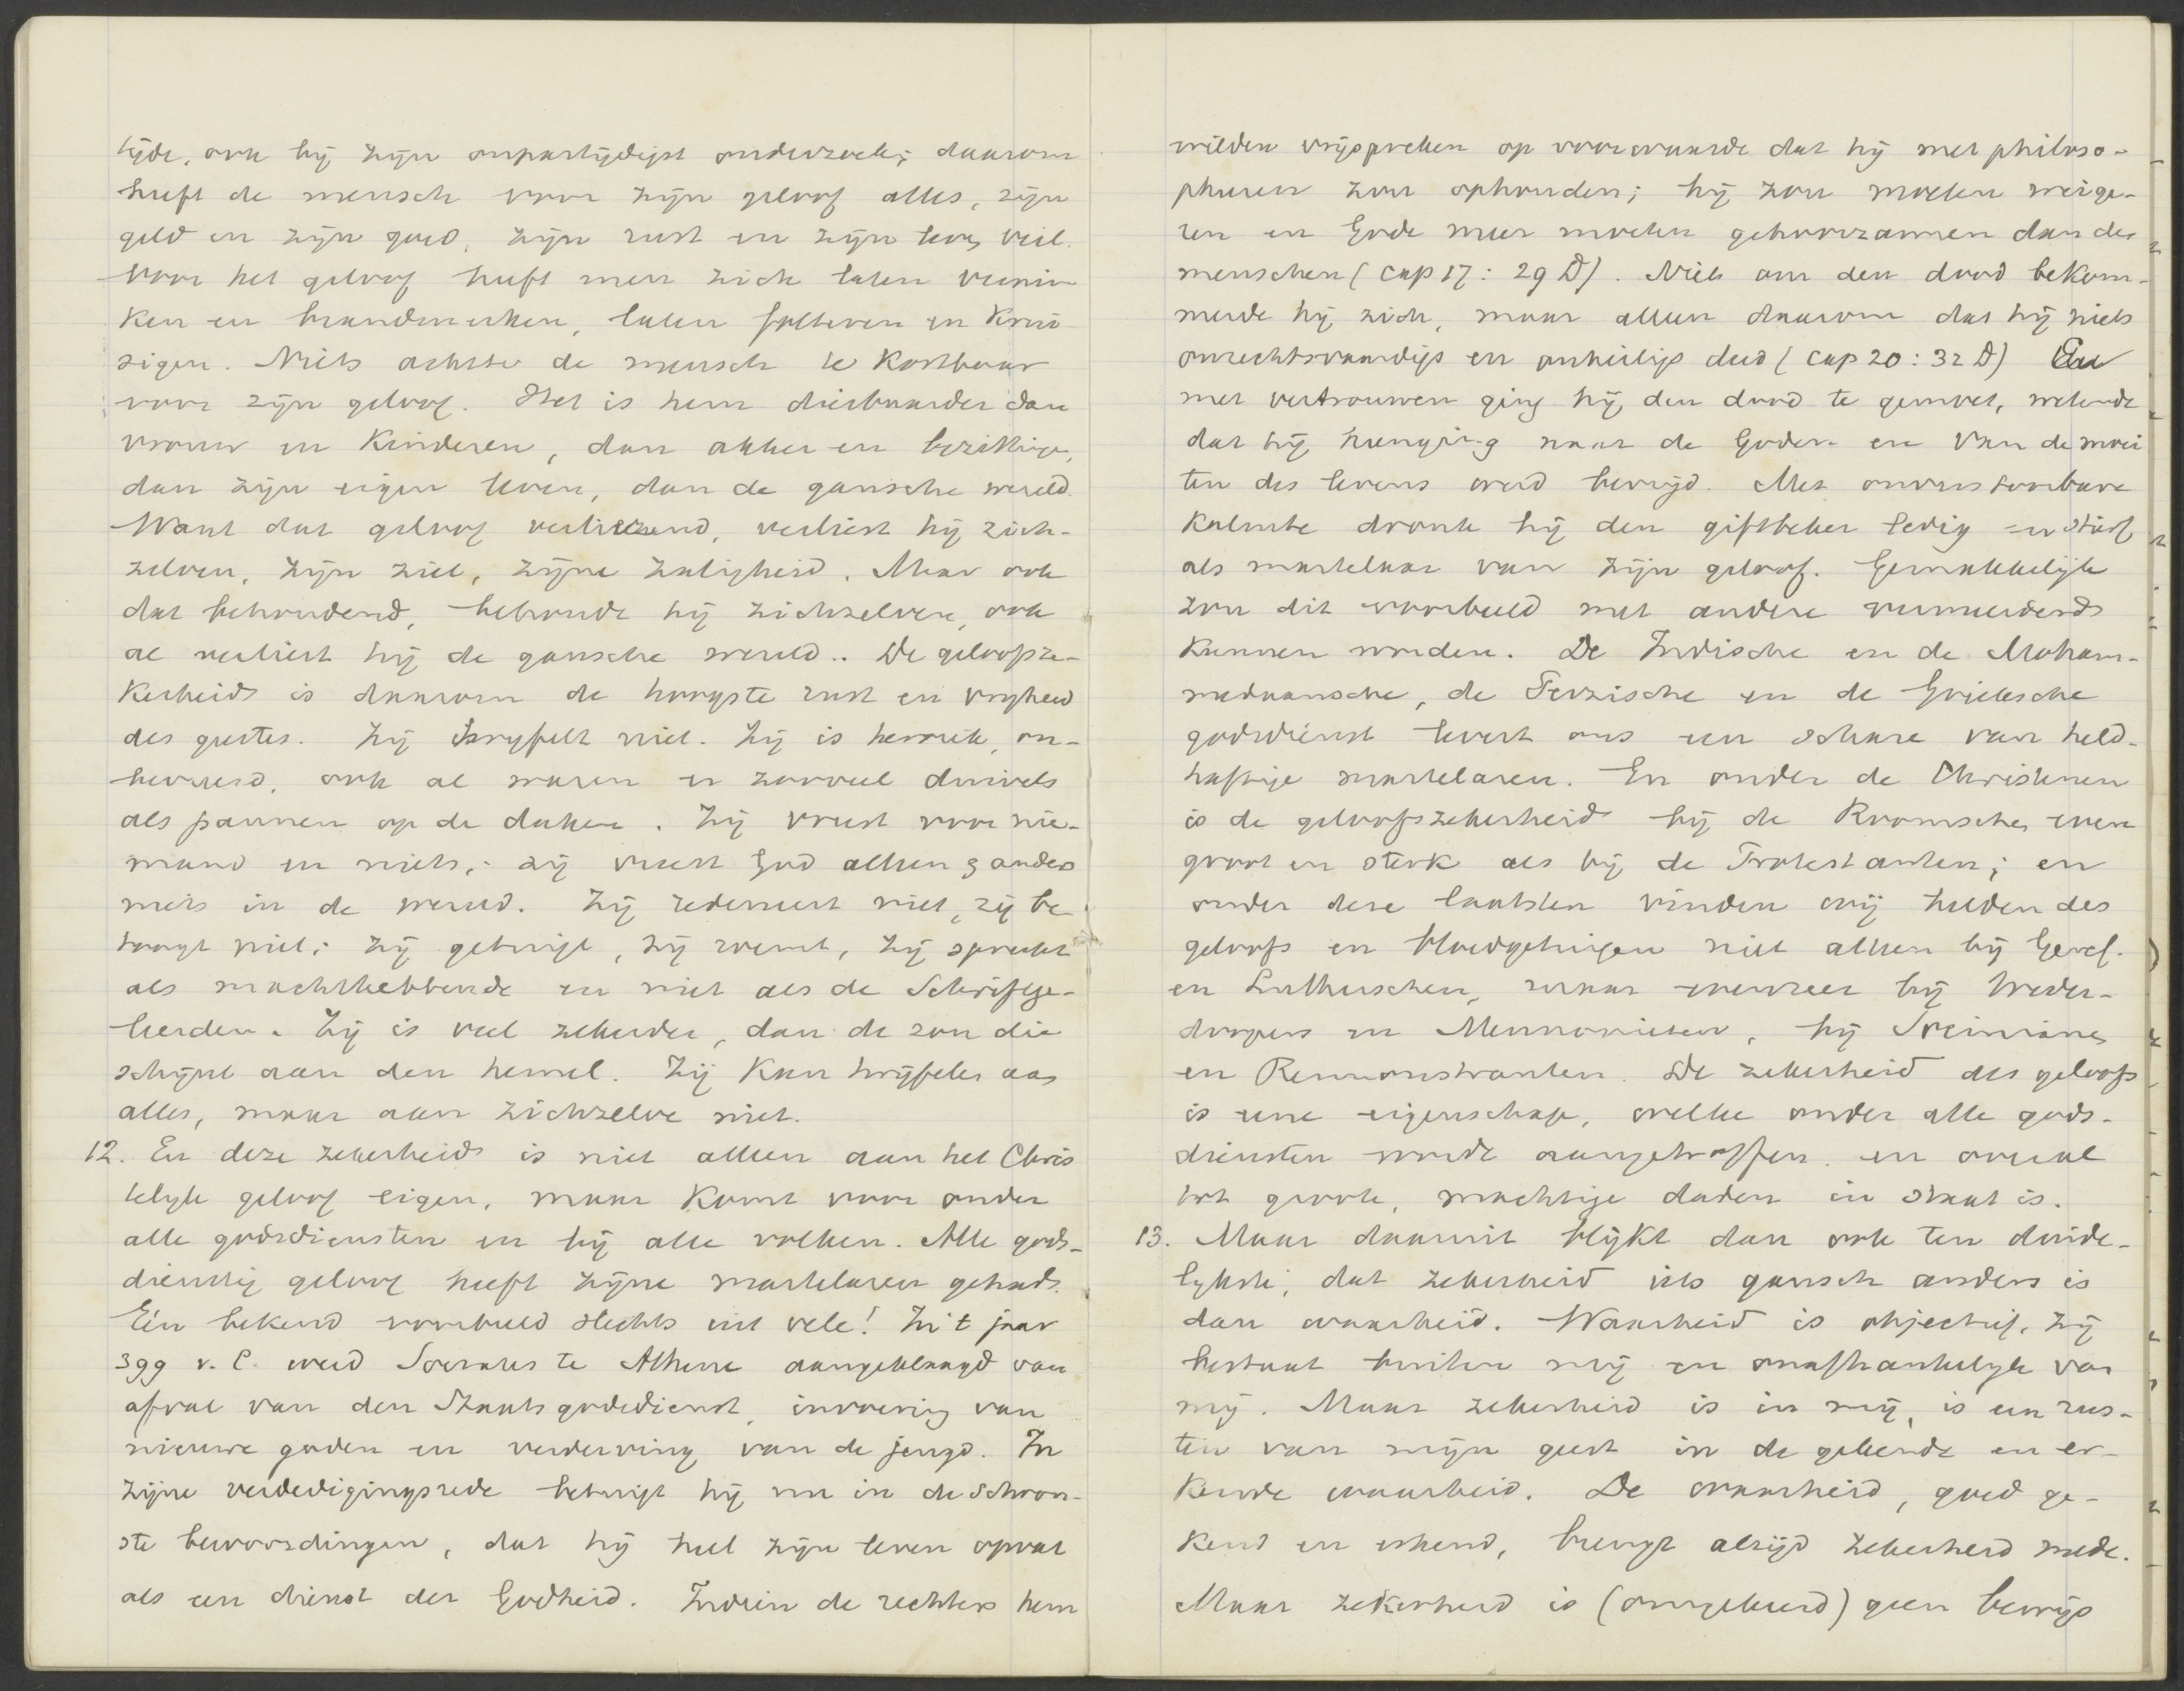 tijde, ook bij zijn onpartijdigst onderzoek; daarom
heeft de mensch voor zijn geloof alles, zijn
geld en zijn goed, zijn rust en zijn leven veil.
Voor het geloof heeft men zich laten vermin
ken en brandmerken, laten folteren en Krui
sigen. Niets achtte de mensch te Kostbaar
voor zijn geloof. Het is hem dierbaarder dan
vrouw en Kinderen, dan akker en bezitting,
dan zijn eigen leven, dan de gansche wereld.
Want dat geloof verliezend, verliest hij zich-
zelven, zijn ziel, zijne zaligheid. Maar ook
dat behoudend, behoudt hij zichzelven, ook
al verliest hij de gansche wereld.. De geloofsze-
Kerheid is daarom de hoogste rust en vryheid
des geestes. Zij twyfelt niet. Zij is heroiek, on-
bevreesd, ook al waren er zooveel duivels
als pannen op de daken. Zij vreest voor nie-
mand en niets; zij vreest God alleen & anders
niets in de wereld. Zij redeneert niet, zij be
toogt niet; zij getuigt, zij roemt, zij spreekt
als machthebbende en niet als de Schriftge-
leerden. Zij is veel zekerder, dan de zon die
schijnt aan den hemel. Zij Kan twijfelen aan
alles, maar aan zichzelve niet.
12. En deze zekerheid is niet alleen aan het Chris
telyk geloof eigen, maar Komt voor onder
alle godsdiensten en bij alle volken. Alle gods-
dienstig geloof heeft zijne martelaren gehad.
Eén bekend voorbeeld slechts uit vele! In 't jaar
399 v. C. werd Socrates te Athene aangeklaagd van
afval van den Staatsgodsdienst, invoering van
nieuwe goden en verderving van de jeugd. In
zijne verdedigingsrede betuigt hij nu in de schoon-
ste bewoordingen, dat hij heel zijn leven opvat
als een dienst der Godheid. Indien de rechters hem
wilden vrijspreken op voorwaarde dat hij met philoso-
pheeren zou ophouden; hij zou moeten weige-
ren en Gode meer moeten gehoorzamen dan de
menschen (cap 17: 29 D). Niets om den dood bekom-
merde hij zich, maar alleen daarom dat hij niets
onrechtvaardigs en onheiligs deed (cap 20: 32 D) En
met vertrouwen ging hij den dood te gemoet, wetende
dat hij heenging naar de Goden en van de moei
ten des levens werd bevrijd. Met onverstoorbare
Kalmte dronk hij den giftbeker ledig en stierf
als martelaar van zijn geloof. Gemakkelijk
zou dit voorbeeld met andere vermeerderd
Kunnen worden. De Indische en de Moham-
medaansche, de Perzische en de Grieksche
godsdienst levert ons een schare van held-
haftige martelaren. En onder de Christenen
is de geloofszekerheid bij de Roomschen even
groot en sterk als bij de Protestanten; en
onder deze laatsten vinden wij helden des
geloofs en bloedgetuigen niet alleen bij Geref.
en Lutherschen, maar evenzeer bij Weder-
doopers en Mennonieten, bij Socinianen
en Remonstranten. De zekerheid des geloofs
is eene eigenschap, welke onder alle gods-
diensten wordt aangetroffen en overal
tot groote, machtige daden in staat is.
13. Maar daaruit blijkt dan ook ten duide-
lykste, dat zekerheid iets gansch anders is
dan waarheid. Waarheid is objectief, zij
bestaat buiten mij en onafhankelyk van
mij. Maar zekerheid is in mij, is een rus-
ten van mijn geest in de gekende en er-
Kende waarheid. De waarheid, goed ge-
Kend en erkend, brengt altijd zekerheid mede.
Maar zekerheid is (omgekeerd) geen bewijs